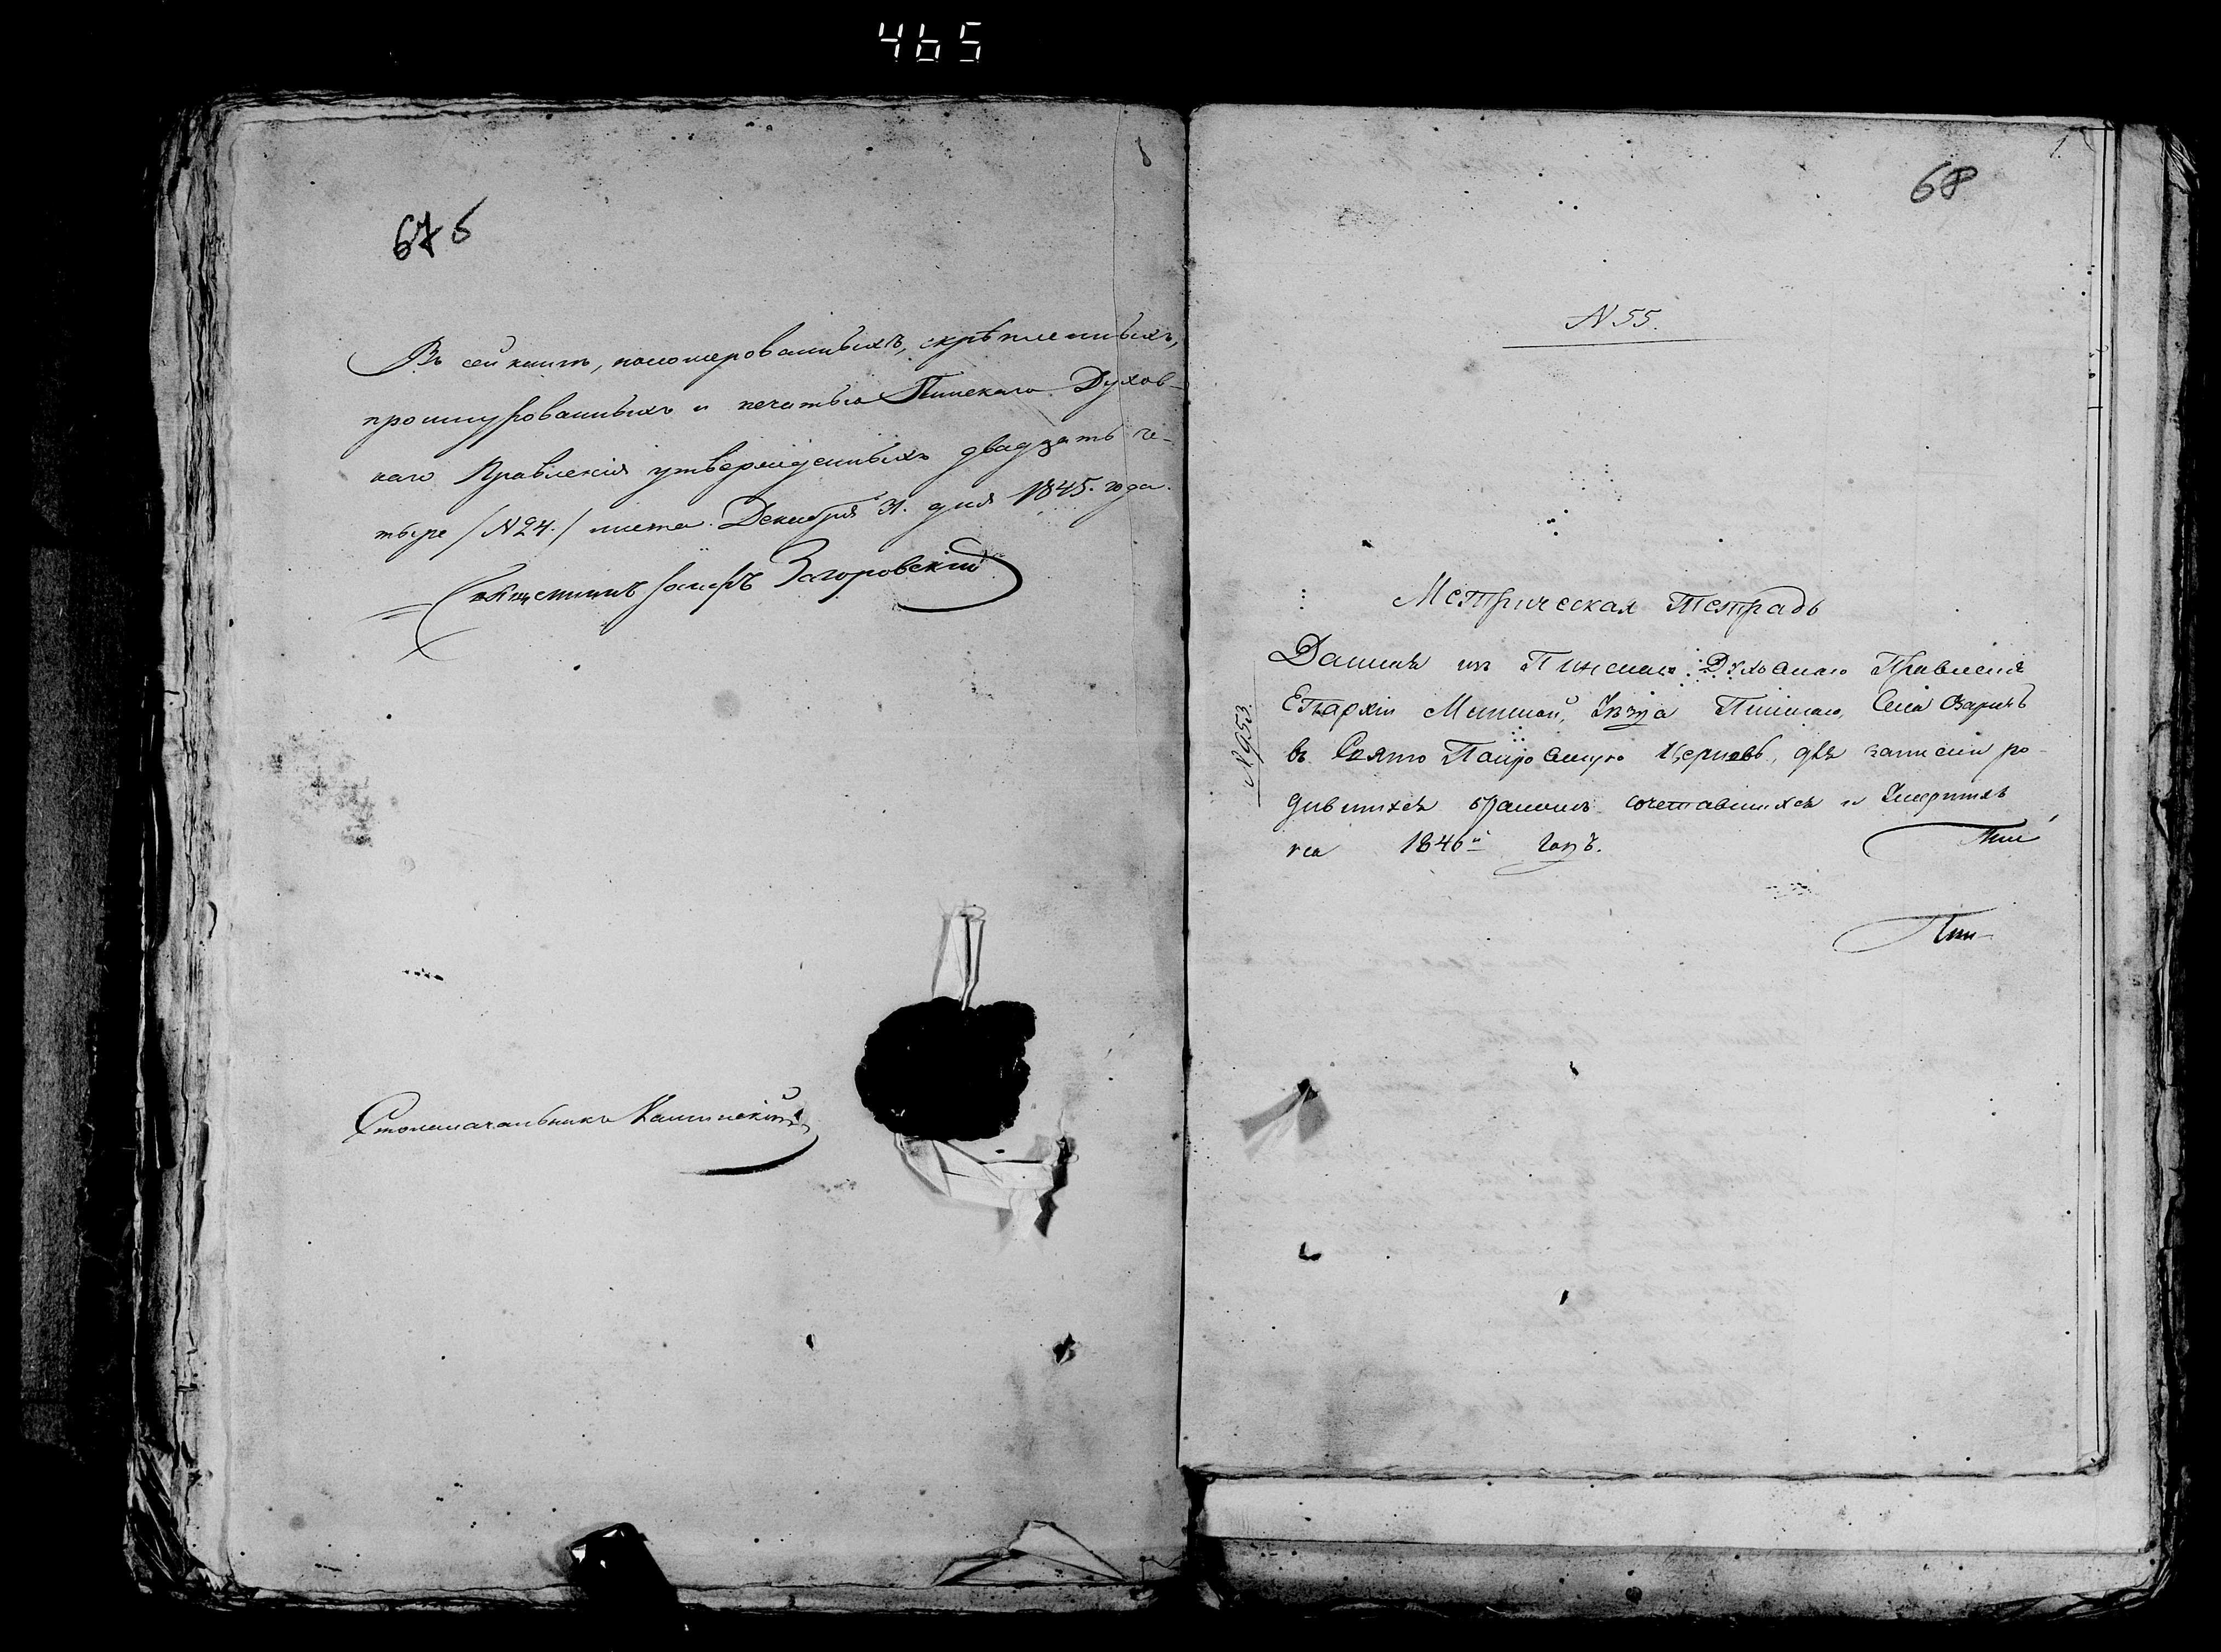 465
67б
Въ сей книгѣ, пономерованныхъ, скрѣпленныхъ,
прошнурованныхъ и печатью Пинскаго Духов-
наго Правленія утвержденныхъ двадцать че-
тыре /N24./ листа. Декабря 31. дня 1845. года.
Іосифъ Загоровскій
Столоначальникъ
1.
68
N 55.
Метрическая Тетрадь
Данная изъ Пинскаго Духовнаго Правленія
Епархіи Минской, Уѣзда Пинскаго, Села Озаричъ
въ Свято Покровскую Церковь, для записки ро-
дившихся бракомъ сочетавшихся и Умершихъ
на 1846й годъ.
Пин-
N 953.